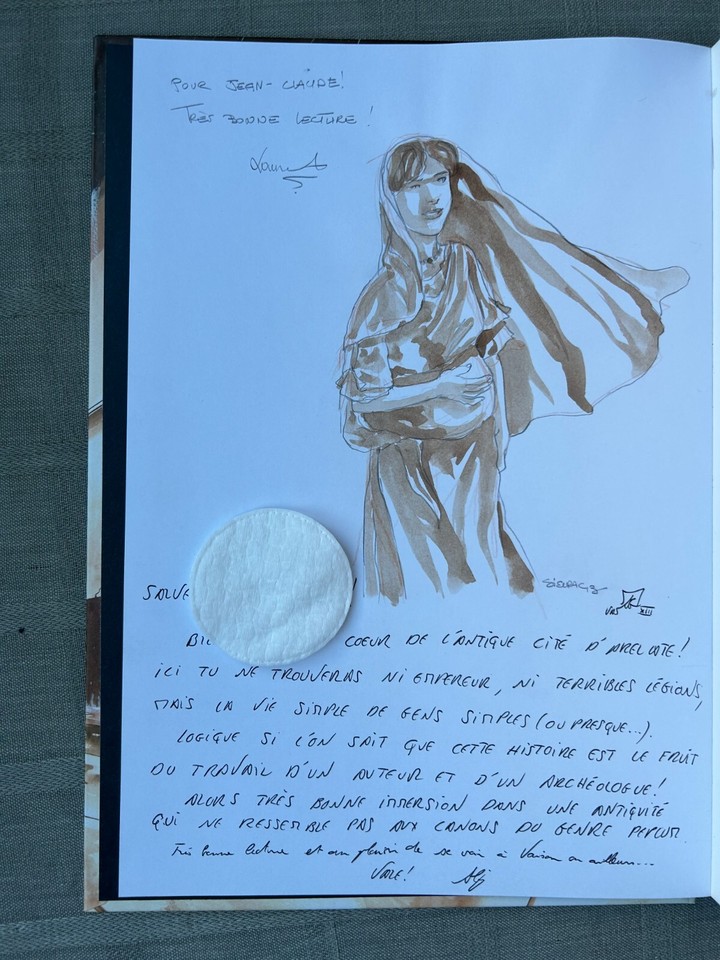 POUR JEAN-CLAUDE!
TRÈS BONNE LECTURE!
SALVE !
COEUR DE L'ANTIQUE CITÉ D'ARELATE!
ICI TU NE TROUVERAS NI EMPEREUR, NI TERRIBLES LÉGIONS,
MAIS LA VIE SIMPLE DE GENS SIMPLES (OU PRESQUE...).
LOGIQUE SI L'ON SAIT QUE CETTE HISTOIRE EST LE FRUIT
DU TRAVAIL D'UN AUTEUR ET D'UN ARCHÉOLOGUE!
ALORS TRÈS BONNE IMMERSION DANS UNE ANTIQUITÉ
QUI NE RESSEMBLE PAS AUX CANONS DU GENRE PEPLUM.
Très bonne lecture et au plaisir de se voir à Vaison ou ailleurs...
VALE!